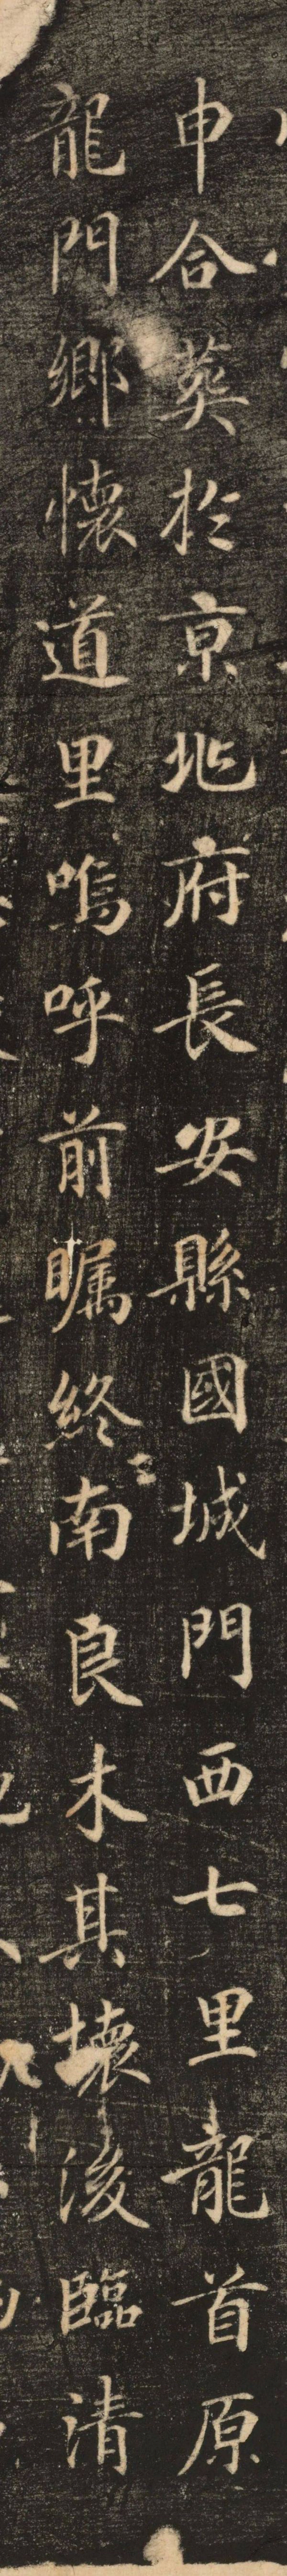 申合葬於京兆府長安縣國城門西七里龍首原
龍門鄉懷道里嗚呼前矚終南良木其壞後臨清